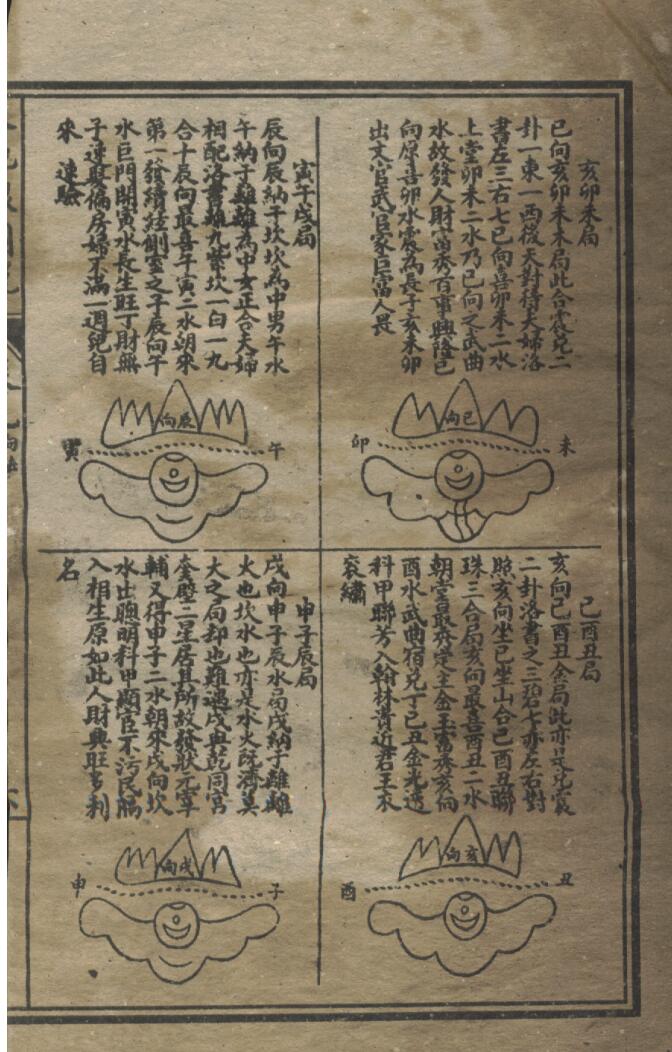 亥卯未局
巳向亥卯未木局此合震兌二
卦一東一西後天對待夫婦洛
書左三右七巳向喜卯未二水
上堂卯未二水乃巳向之武曲
水故發人財富秀百事興隆巳
向原喜卯水震為長子亥未卯
出文官武官家巨富人畏
巳向
卯
未
寅午戌局
辰向辰納于坎坎為中男午水
午納于離離為中女正合夫婦
相配洛書離九紫坎一白一九
合十辰向最喜午寅二水朝來
第一發續絃側室之子辰向午
水巨門開寅水長生旺丁財無
子連娶偏房婦不滿一週兒自
來 速驗
辰向
寅
午
巳酉丑局
亥向巳酉丑金局此亦是兌震
二卦洛書之三碧七赤左右對
照亥向坐巳坐山合巳酉丑聯
珠三合局亥向最喜酉丑二水
朝堂最秀定主金玉富秀亥向
酉水武曲宿兌丁巳丑金光透
科甲聯芳入翰林貴近君王衣
袞繡
亥向
酉
丑
申子辰局
戌向申子辰水局戌納于離離
火也坎水也亦是水火既濟莫
大之局却也難遇戌與乾同宮
奎壁二星居其所故發狀元宰
輔又得申子二水朝來戌向坎
水出聰明科甲顯官不污民隔
入相生原如此人財興旺多利
名
戌向
申
子